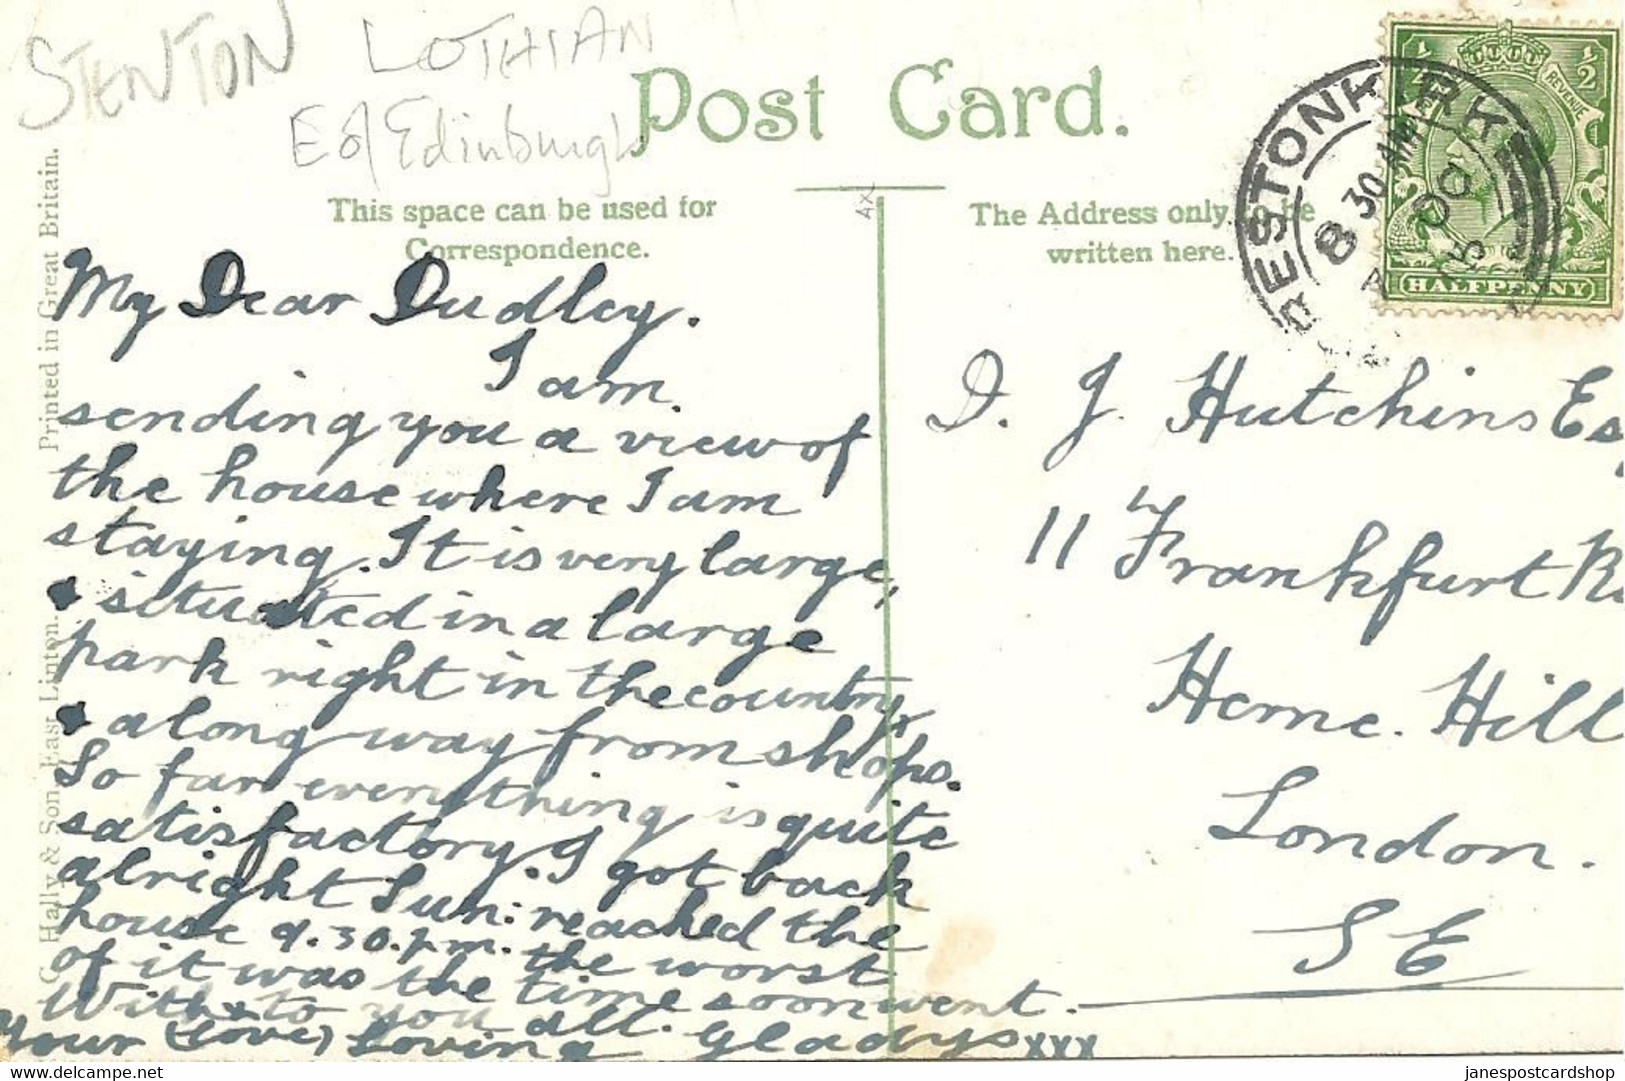 STENTON LOTHIAN
E of Edinburgh
Post Card.
This space can be used for
Correspondence.
The Address only to be
written here.
PRESTONKIRK
8 30 AM
½ ½
REVENUE
HALFPENNY
My Dear Dudley.
I am.
sending you a view of
the house where I am
staying. It is very large,
situated in a large
park right in the country
along way from shops.
So far everything is quite
satisfactory. I got back
alright Sun: reached the
house 9.30.p.m. the worst
of it was the time soon went.
With to you all. Gladys xxx
Your (love) Loving
D. J. Hutchins Es
11 Frankfurt R
Herne. Hill
London.
S E
C. Hally & Son, East Linton. Printed in Great Britain.
hippostcard.net
janespostcardshop